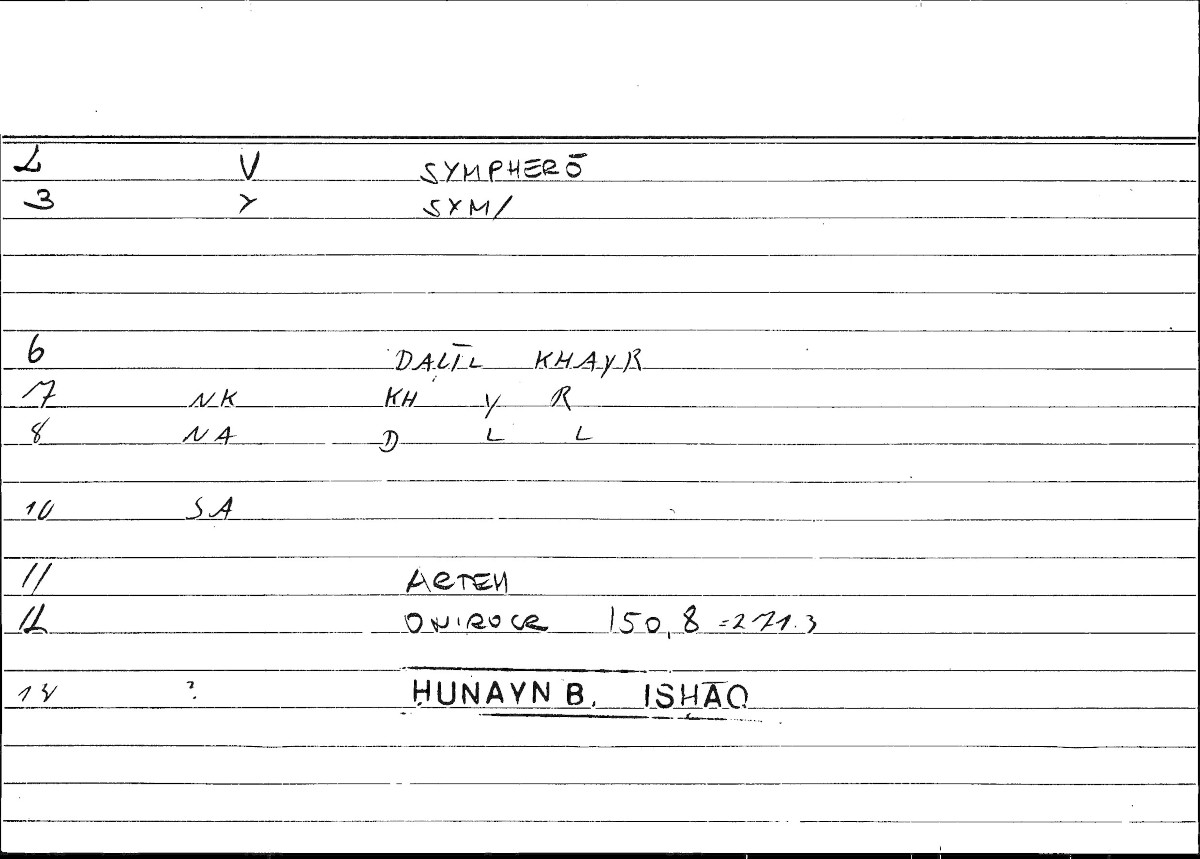 2 V SYMPHERŌ
3 Y SYM/
6 DALĪL KHAYR
7 NK KH Y R
8 NA D L L
10 SA
11 ARTEM
12 ONIROCR 150,8 =271.3
14 ? ḤUNAYN B. ISḤĀQ